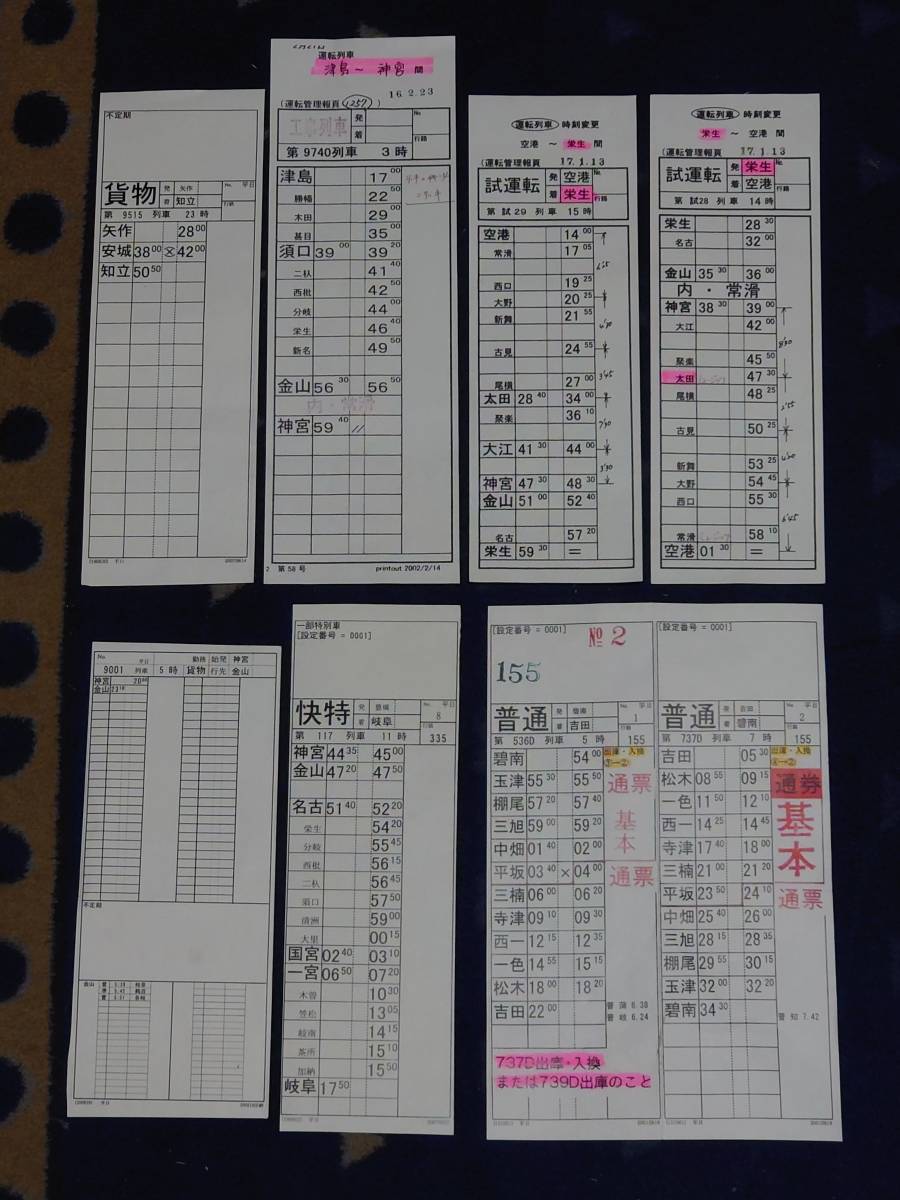 不定期
貨物 発 矢作
着 知立
No. 平日
行路
第 9515 列車 23時
矢作 28 00
安城 38 00 42 00
知立 50 50
運転列車
津島〜神宮 間
16.2.23
(運転管理報頁 1257 )
工事列車 発
着
No.
行路
第 9740列車 3時
津島 17 00
勝幡 22 50
木田 29 00
甚目 35 00
須口 39 00 39 20
二杁 41 40
西枇 42 50
分岐 44 00
栄生 46 40
新名 49 50
金山 56 30 56 50
内・常滑
神宮 59 40 〃
2 第58号
printout 2002/2/14
運転列車 時刻変更
空港 〜 栄生 間
(運転管理報頁 17.1.13
試運転 発 空港
着 栄生
No.
行路
第 試29 列車 15時
空港 14 00
常滑 17 05
西口 19 25
大野 20 25
新舞 21 55
古見 24 55
尾横 27 00
太田 28 40 34 00
聚楽 36 10
大江 41 30 44 00
神宮 47 30 48 30
金山 51 00 52 40
名古 57 20
栄生 59 30 =
運転列車 時刻変更
栄生 〜 空港 間
(運転管理報頁 17.1.13
試運転 発 栄生
着 空港
No.
行路
第 試28 列車 14時
栄生 28 30
名古 32 00
金山 35 30 36 00
内・常滑
神宮 38 30 39 00
大江 42 00
聚楽 45 50
太田 47 30
尾横 48 25
古見 50 25
新舞 53 25
大野 54 45
西口 55 30
常滑 58 10
空港 01 30 =
No. 平日 勤務 始発 神宮
9001 列車 5時 貨物 行先 金山
神宮 20
金山 23 10
不定期
一部特別車
[設定番号 = 0001]
快特 発 豊橋
着 岐阜
No. 平日
8
行路
335
第 117 列車 11時
神宮 44 35 45 00
金山 47 20 47 50
名古 51 40 52 20
栄生 54 20
分岐 55 45
西枇 56 15
二杁 56 45
須口 57 50
清洲 59 00
大里 00 15
国宮 02 40 03 10
一宮 06 50 07 20
木曽 10 30
笠松 13 05
岐南 14 15
茶所 15 10
加納 15 50
岐阜 17 50
[設定番号 = 0001]
No 2
155
普通 発 碧南
着 吉田
No. 平日
1
行路
155
第 536D 列車 5時
碧南 54 00
玉津 55 30 55 50
棚尾 57 20 57 40
三旭 59 00 59 20
中畑 01 40 02 00
平坂 03 40 × 04 00
三楠 06 00 06 20
寺津 09 10 09 30
西一 12 15 12 35
一色 14 55 15 15
松木 18 00 18 20
吉田 22 00
出庫・入換
①→②
通票
基本
通票
普 蒲 6.38
普 岐 6.24
737D出庫・入換
または739D出庫のこと
[設定番号 = 0001]
普通 発 吉田
着 碧南
No. 平日
2
行路
155
第 737D 列車 7時
吉田 05 30
松木 08 55 09 15
一色 11 50 12 10
西一 14 25 14 45
寺津 17 40 18 00
三楠 21 00 21 20
平坂 23 50 24 10
中畑 25 40 26 00
三旭 28 15 28 35
棚尾 29 55 30 15
玉津 32 00 32 20
碧南 34 30
出庫・入換
通券
基本
通票
普 知 7.42